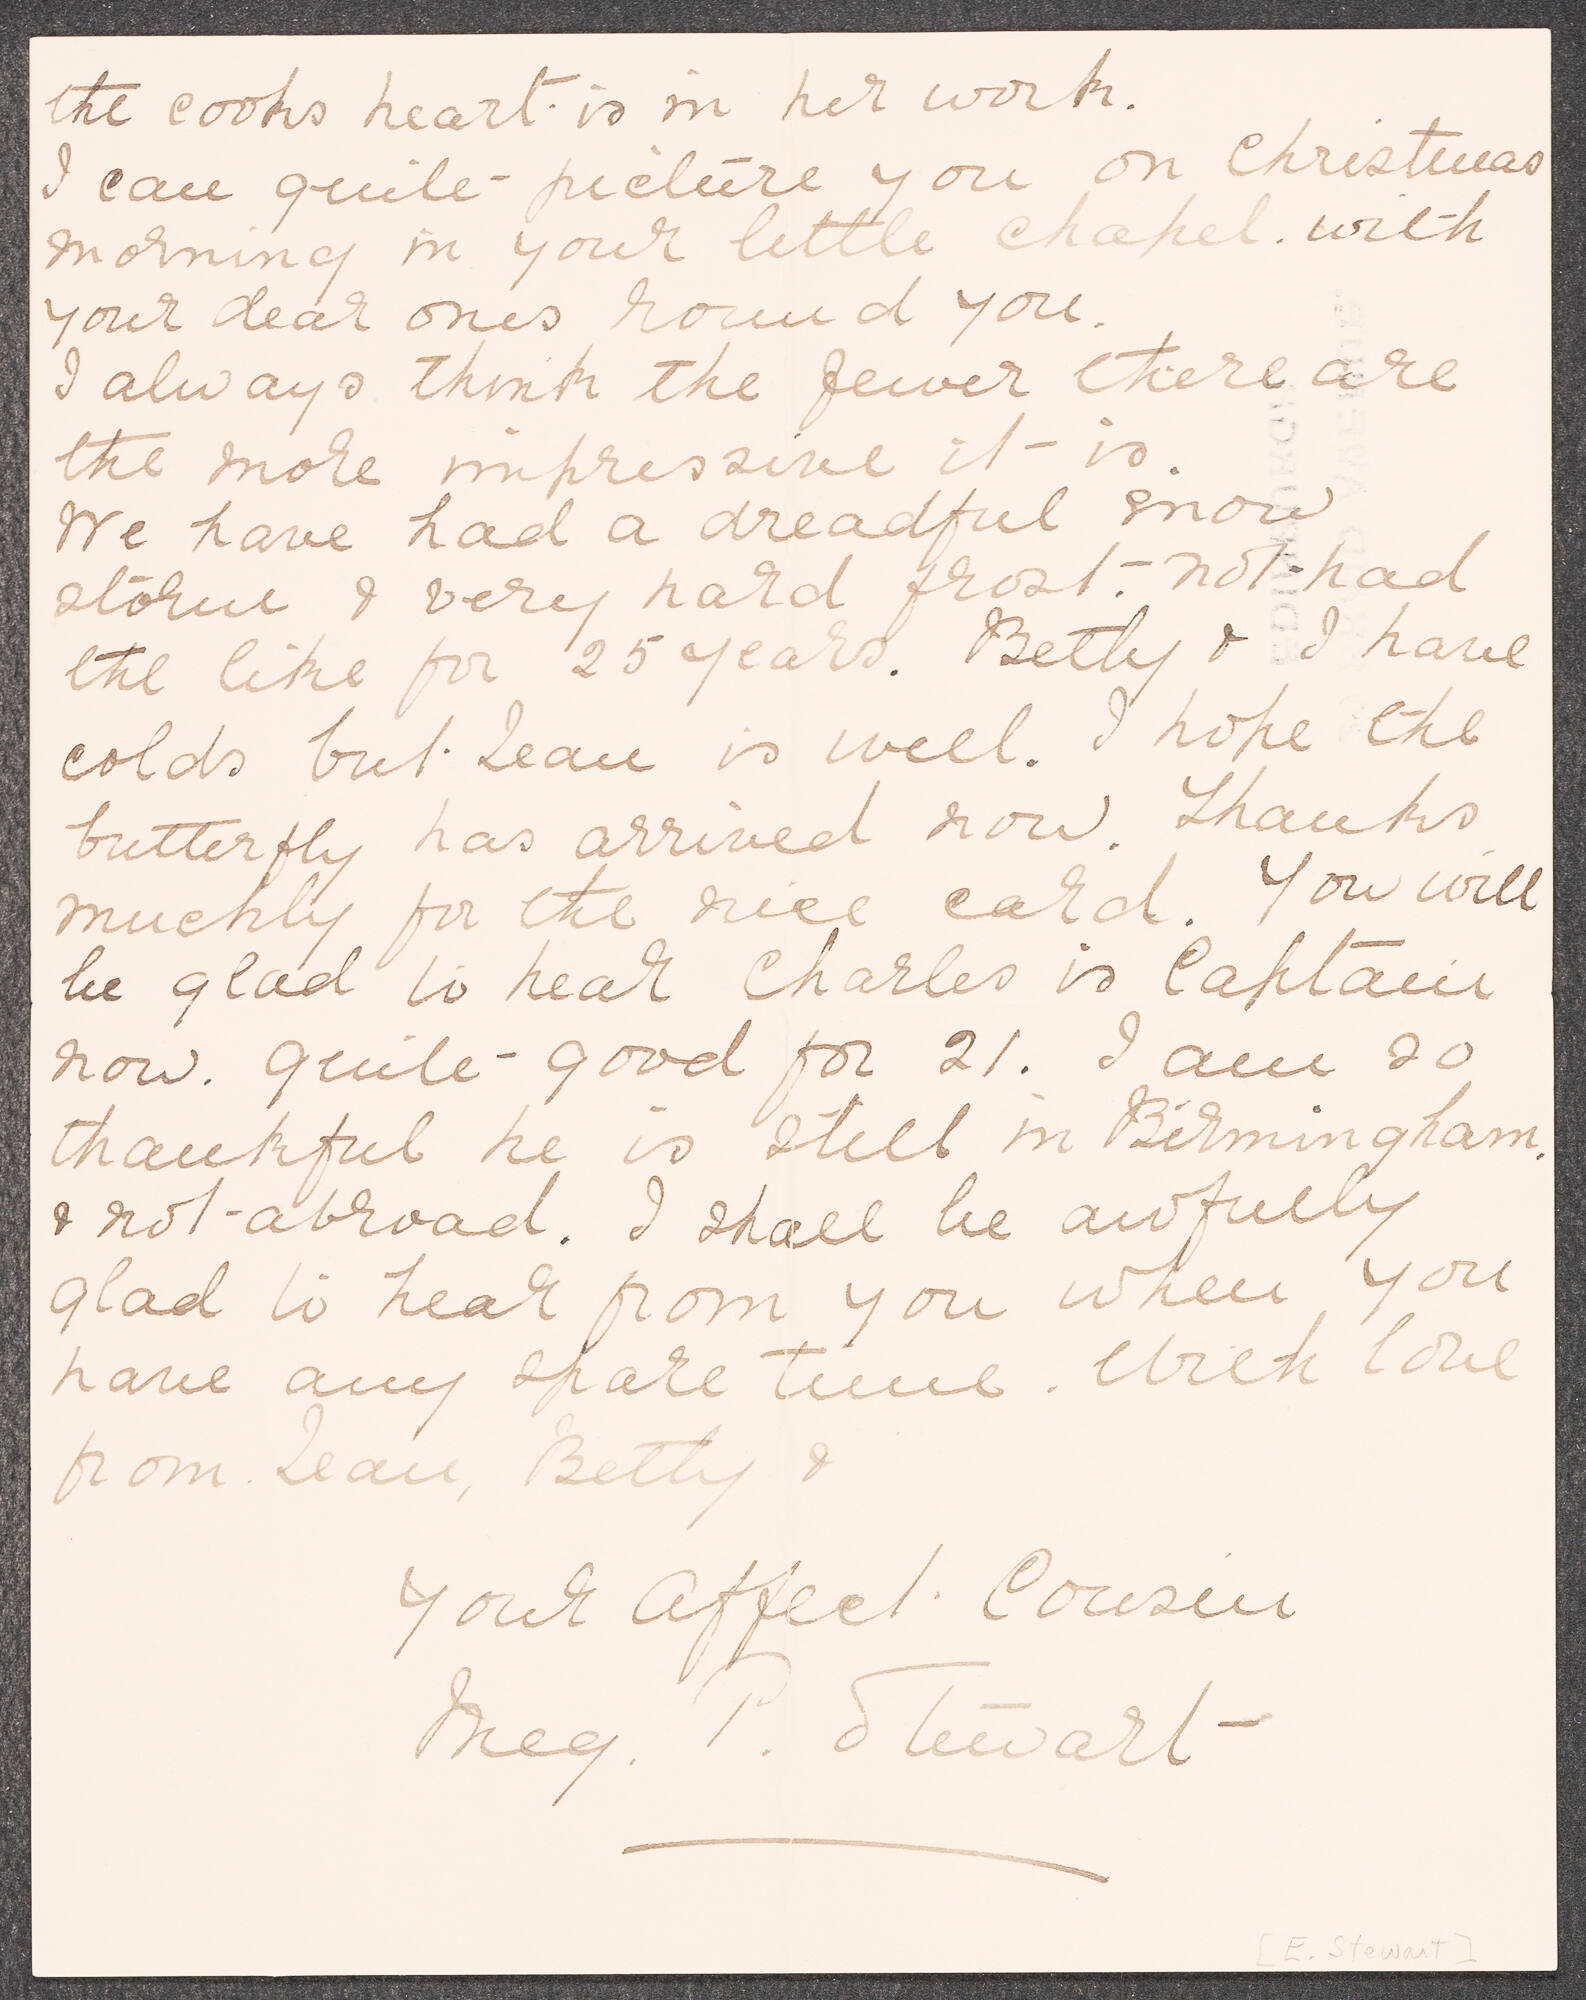 the cooks heart is in her work.
I can quite picture you on Christmas
morning in your little chapel. with
your dear ones round you.
I always think the fewer there are
the more impressive it is.
We have had a dreadful snow
storm & very hard frost. not had
the like for 25 years. Betty & I have
colds but Jean is well. I hope the
butterfly has arrived now. Thanks
muchly for the nice card. You will
be glad to hear Charles is Captain
now. quite good for 21. I am so
thankful he is still in Birmingham.
& not abroad. I shall be awfully
glad to hear from you when you
have any spare time. With love
from Jean, Betty &
Your Affect. Cousin
Meg. P. Stewart
[E. Stewart]